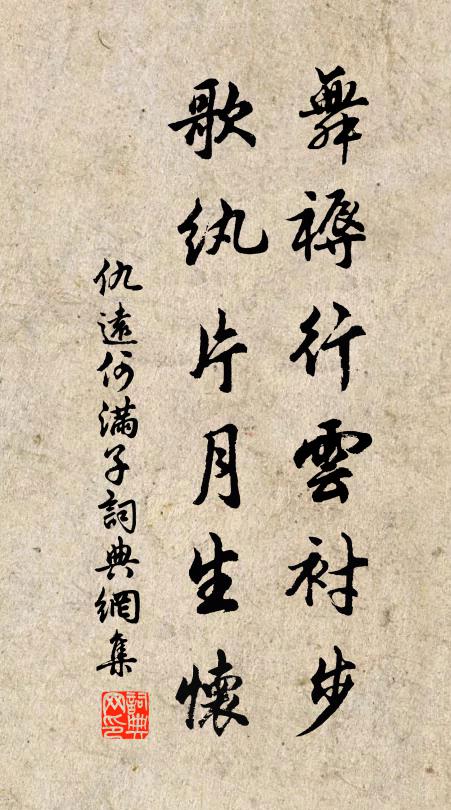 舞褥行雲衬步
歌纨片月生懷
仇遠何滿子詞典網集
詞典网印